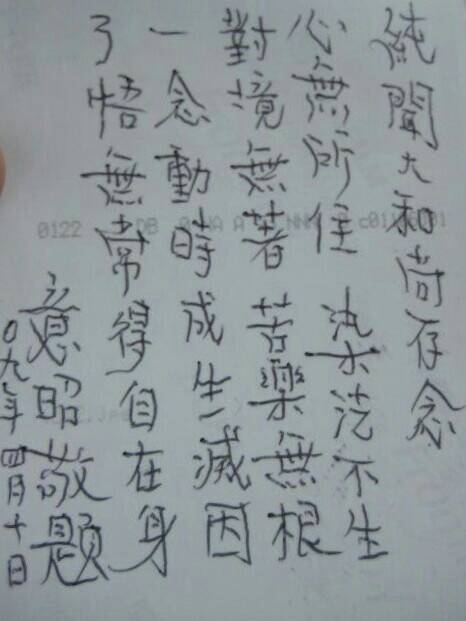 純聞大和尚存念
心無所住 染汚不生
對境無著 苦樂無根
一念動時 成生滅因
了悟無常 得自在身
意昭敬題
〇九年四月十日
0122